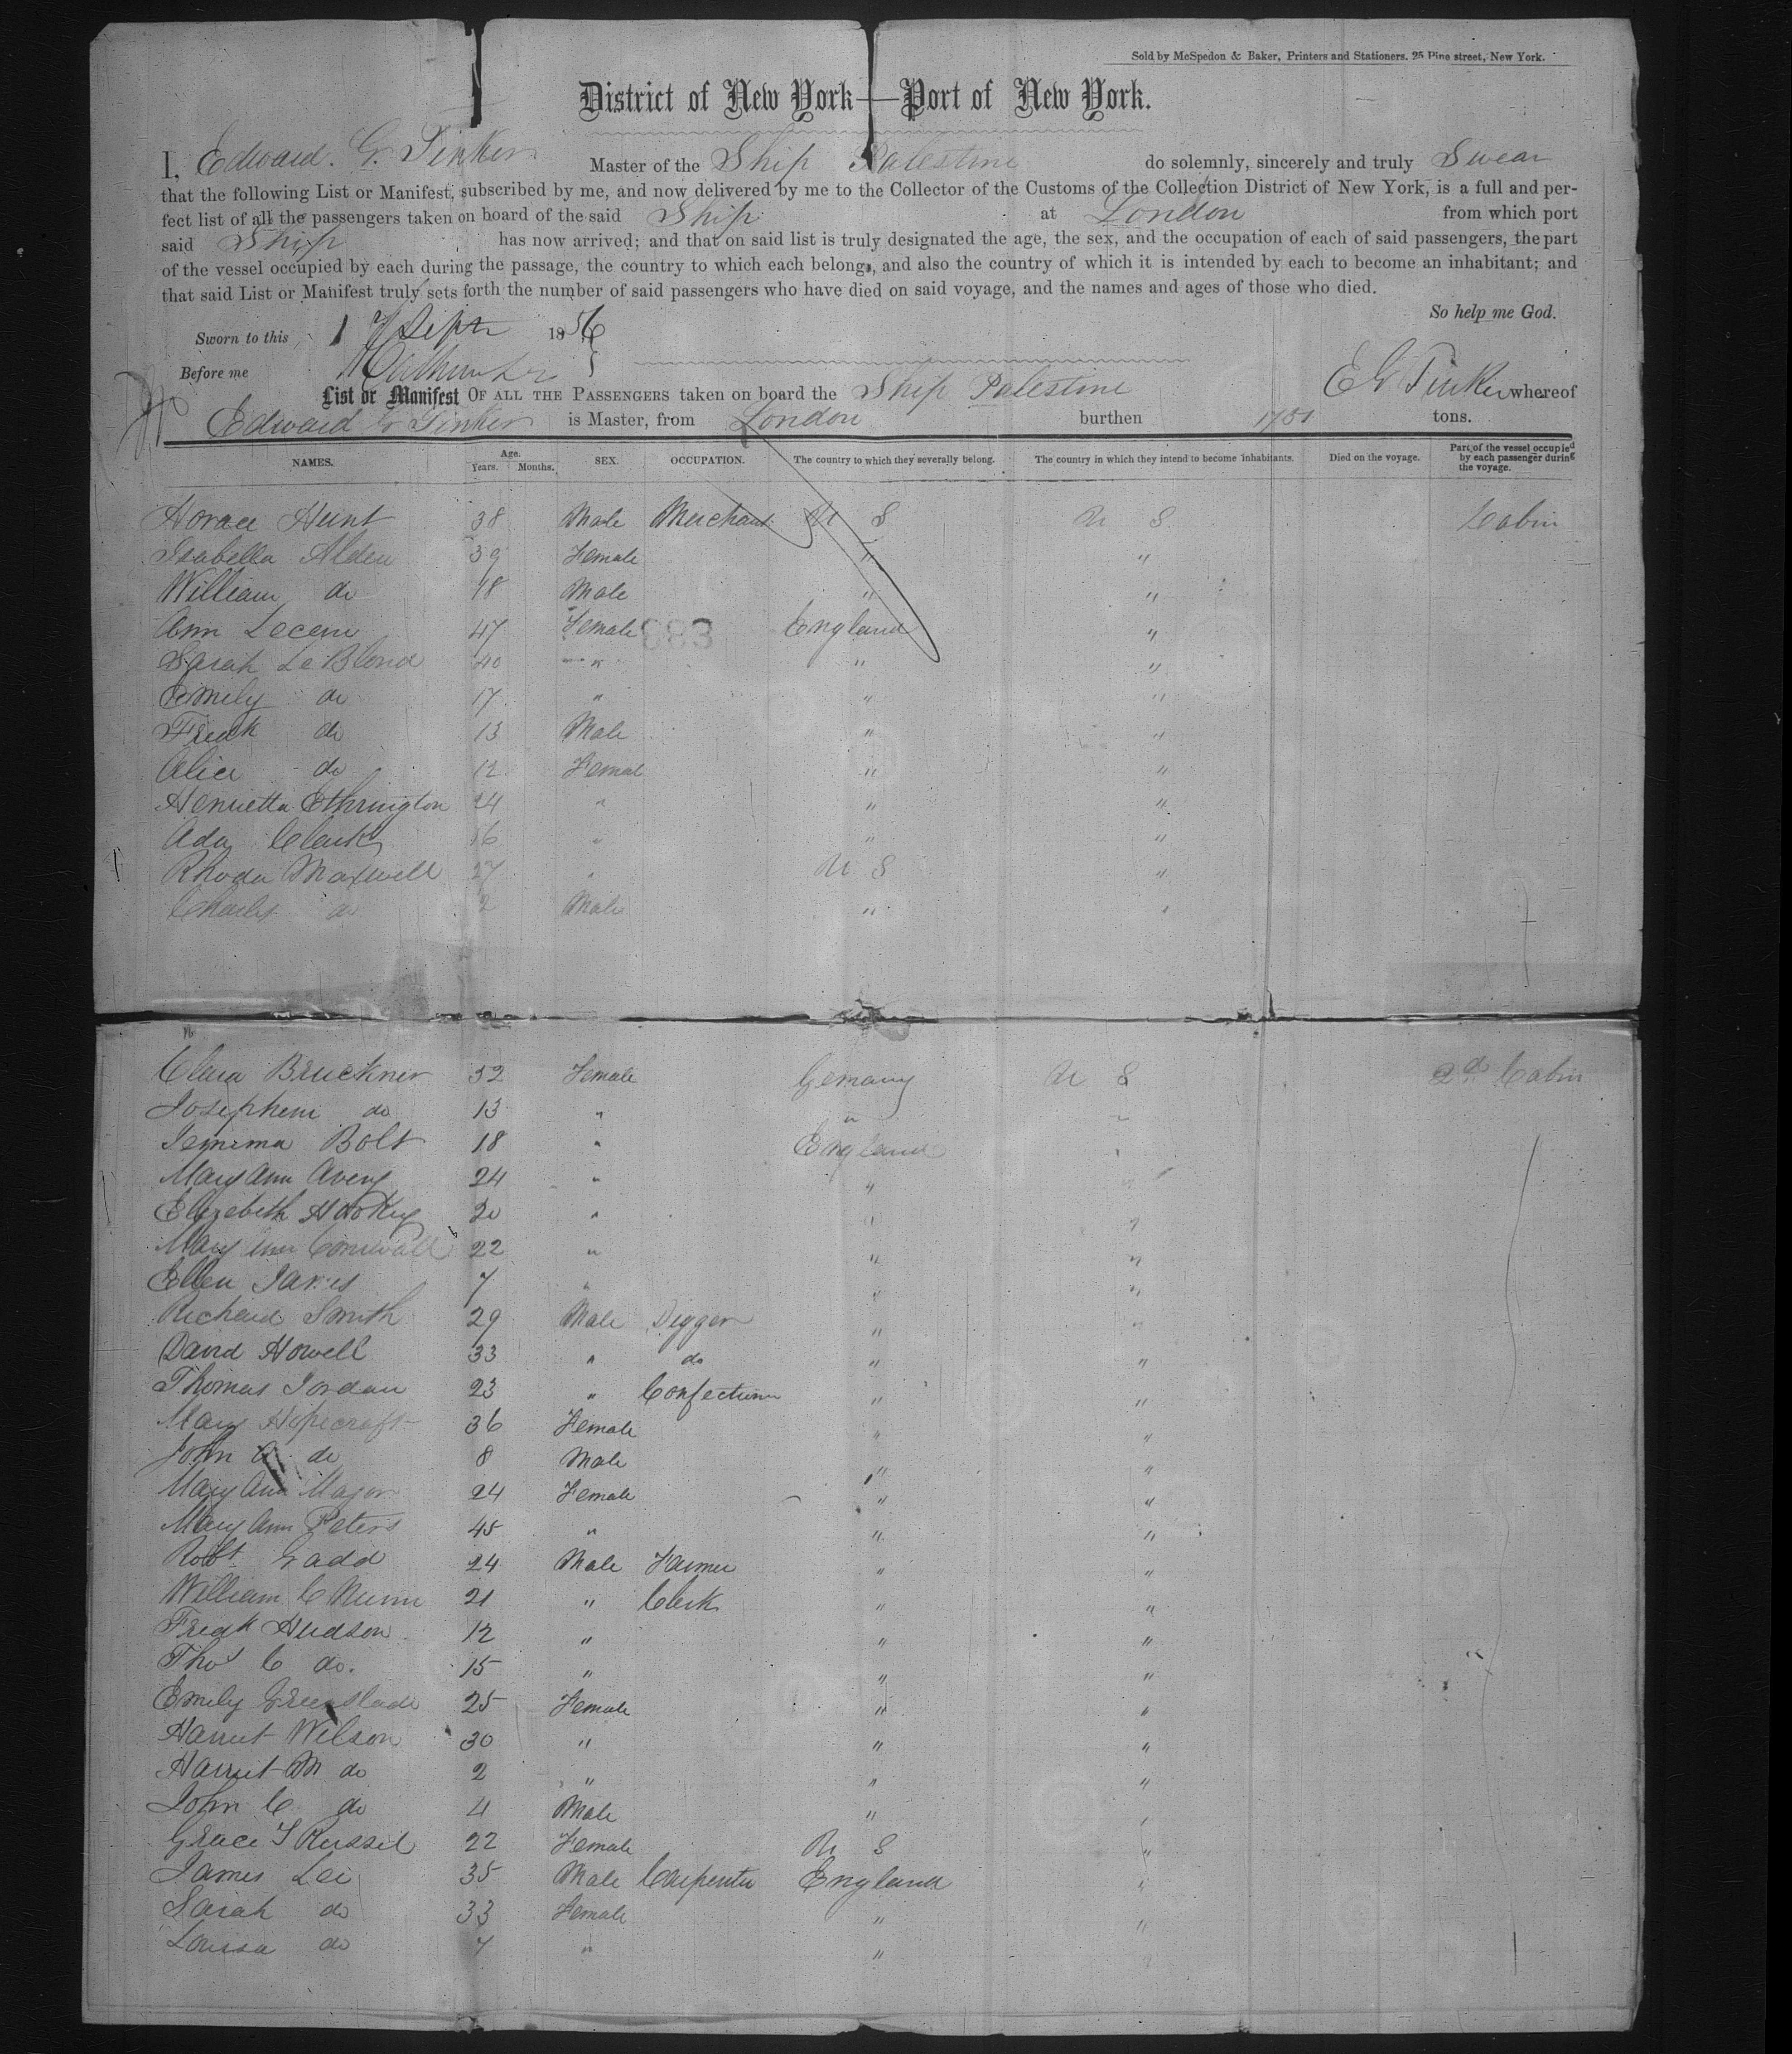 Sold by McSpedon & Baker, Printers and Stationers. 25 Pine street, New York.
District of New York—Port of New York.
I, Edward. G. Tinker Master of the Ship Palestine do solemnly, sincerely and truly Swear
that the following List or Manifest, subscribed by me, and now delivered by me to the Collector of the Customs of the Collection District of New York, is a full and per-
fect list of all the passengers taken on board of the said Ship at London from which port
said Ship has now arrived; and that on said list is truly designated the age, the sex, and the occupation of each of said passengers, the part
of the vessel occupied by each during the passage, the country to which each belong, and also the country of which it is intended by each to become an inhabitant; and
that said List or Manifest truly sets forth the number of said passengers who have died on said voyage, and the names and ages of those who died.
So help me God.
Sworn to this 17 Sept 1856
Before me
E G Tinker
List or Manifest OF ALL THE PASSENGERS taken on board the Ship Palestine whereof
Edward G Tinker is Master, from London burthen 1751 tons.
NAMES. Age. Years. Months. SEX. OCCUPATION. The country to which they severally belong. The country in which they intend to become inhabitants. Died on the voyage. Part of the vessel occupied by each passenger during the voyage.
Horace Hunt 38 Male Merchant U S U S Cabin
Isabella Alden 39 Female " "
William do 18 Male " "
Ann Lecem 47 Female England "
383
Sarah Le Blond 40 " " "
Emily do 17 " " "
Fredk do 13 Male " "
Alice do 12 Femal " "
Henrietta Ethrington 24 " " "
Ada Clark 16 " " "
Rhoda Maxwell 27 " U S "
Charles do 2 Male " "
Clara Bruckner 32 Female Gemany U S 2d Cabin
Josephem do 13 " " "
Jemima Bolt 18 " England "
Mary Ann Avery 24 " " "
Elizabeth 20 " " "
Mary Ann Cornwall 22 " " "
Ellen James 7 " " "
Richard Smith 29 Male Digger " "
David Howell 33 " do " "
Thomas Jordan 23 " Confectioner " "
Mary Hopecraft 36 Female " "
John A do 8 Male " "
Mary Ann Major 24 Female " "
Mary Ann Peters 45 " " "
Robt Gadd 24 Male Farmer " "
William C Nunn 21 " Clerk " "
Fredk Hudson 12 " " "
Thos C do. 15 " " "
Emily Greenslade 25 Female " "
Harriet Wilson 30 " " "
Harriet M do 2 " " "
John C do 4 Male " "
Grace J Russel 22 Female U S "
James Lee 35 Male Carpenter England "
Sarah do 33 Female " "
Louisa do 7 " " "